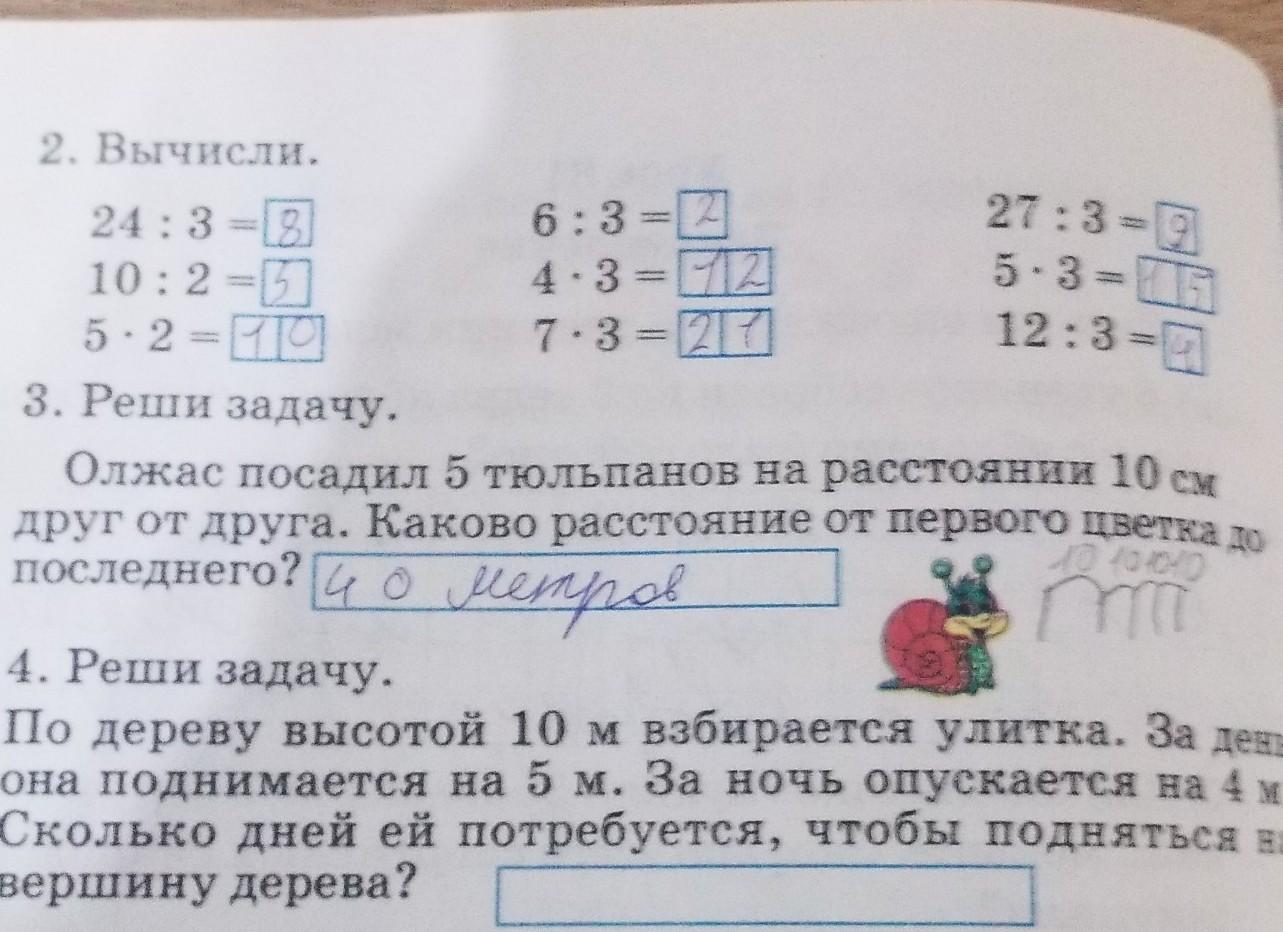 2. Вычисли.
24 : 3 = 8 6 : 3 = 2 27 : 3 = 9
10 : 2 = 5 4 · 3 = 12 5 · 3 = 15
5 · 2 = 10 7 · 3 = 21 12 : 3 = 4
3. Реши задачу.
Олжас посадил 5 тюльпанов на расстоянии 10 см
друг от друга. Каково расстояние от первого цветка до
последнего? 40 метров
10 10 10 10
4. Реши задачу.
По дереву высотой 10 м взбирается улитка. За день
она поднимается на 5 м. За ночь опускается на 4 м
Сколько дней ей потребуется, чтобы подняться на
вершину дерева?